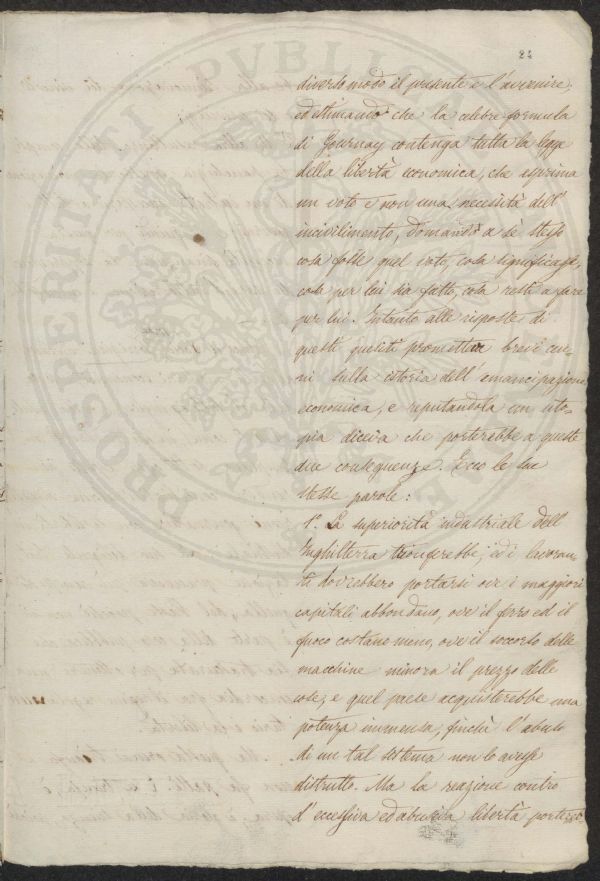 24
diverso modo il presente e l'avvenire;
ed estimando che la celebre formula
di Gournay contenga tutta la legge
della libertà economica, che esprima
un voto e non una necessità dell'
incivilimento, domandò a sè stesso
cosa fosse quel voto, cosa significasse,
cosa per lui sia fatto, cosa resti a fare
per lui. Intanto alle risposte di
questi quesiti promettea brevi cen-
ni sulla istoria dell'emancipazione
economica, e reputandola con uto-
pia diceva che porterebbe a queste
due conseguenze. Ecco le sue
stesse parole:
1.° La superiorità industriale dell'
Inghilterra trionferebbe, ed i lavoran-
ti dovrebbero portarsi ove i maggiori
capitali abbondano, ove il ferro ed il
fuoco costano meno, ove il soccorso delle
macchine minora il prezzo delle
cose, e quel paese acquisterebbe una
potenza immensa, finchè l'abuso
di un tal sistema non lo avesse
distrutto. Ma la reazione contro
l'eccessiva ed abusiva libertà portereb-
PROSPERITATI PVBLICAE